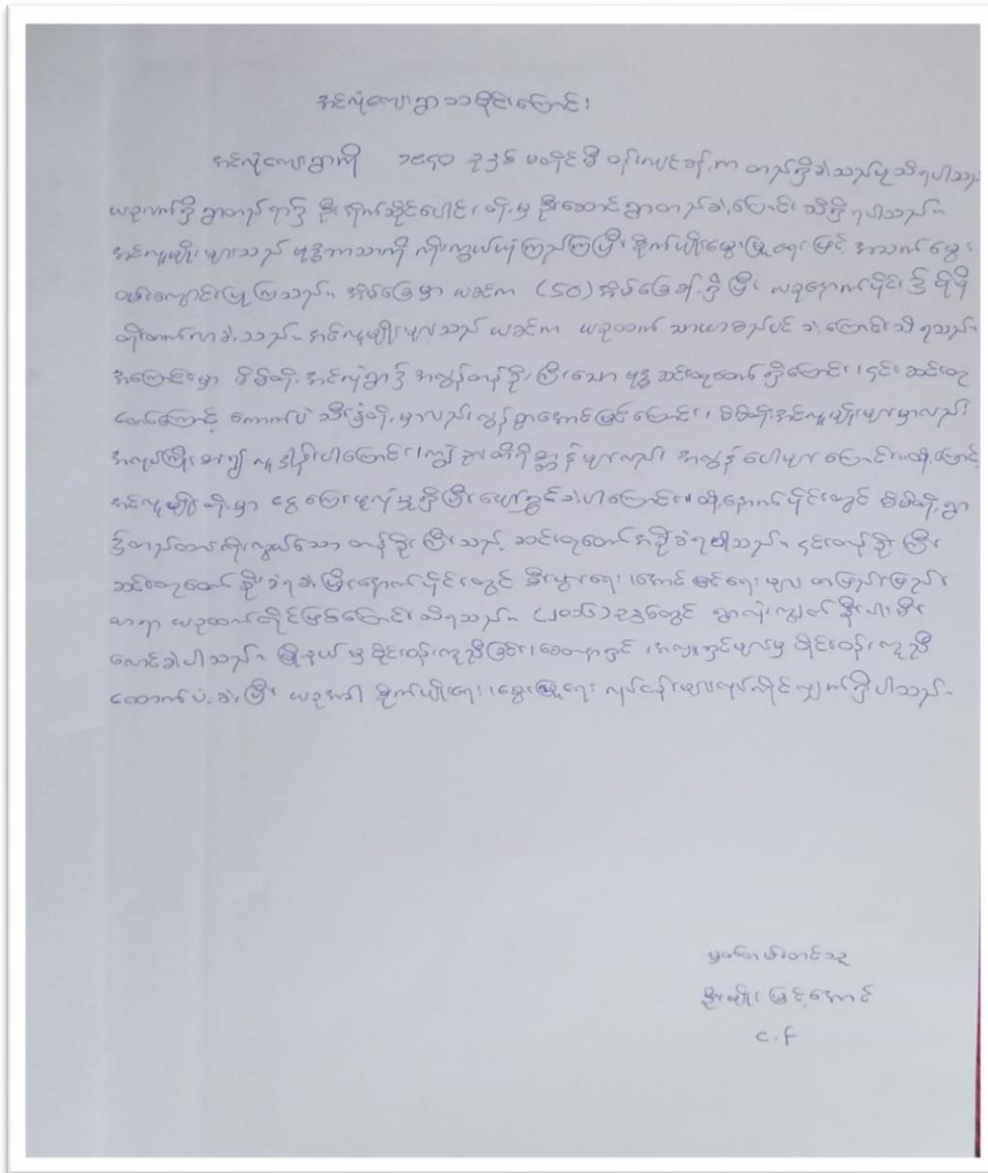 အင်လုံကျောရွာ သမိုင်းကြောင်း
အင်လုံကျောရွာကို ၁၉၄၀ ခုနှစ် မတိုင်မီ ဝန်းကျင်ခန့်က တည်ရှိခဲ့သည်ဟု သိရပါသည်
ယခုလက်ရှိ ရွာတည်ရာ၌ ဦးဆိုင်ပေါင်း တို့မှ ဦးဆောင် ရွာတည်ခဲ့ကြောင်း သိရှိရပါသည်။
အင်လူမျိုးများသည် ဗုဒ္ဓဘာသာကို ကိုးကွယ်ယုံကြည်ကြပြီး စိုက်ပျိုးမွေးမြူရေးဖြင့် အသက်မွေး
ဝမ်းကျောင်းပြုကြသည်။ အိမ်ခြေမှာ ယခင်က (၄၀) အိမ်ခြေခန့်ရှိပြီး ယခုနောက်ပိုင်း၌ ပိုမို
တိုးတက်လာခဲ့သည်။ အင်လူမျိုးများသည် ယခင်က ယခုထက် သာယာစည်ပင် ခဲ့ကြောင်းသိရသည်။
အကြောင်းမှာ မိမိတို့အင်လုံရွာ၌ အလွန်တန်ဖိုးကြီးသော ဗုဒ္ဓ ဆင်းတုတော်ရှိကြောင်း၊ ၎င်းဆင်းတု
တော်ကြောင့် ကောက်ပဲသီးနှံတို့မှာလည်း အောင်မြင်ကြောင်း၊ မိမိတို့အင်လူမျိုးများမှာလည်း
အလုပ်ကြိုးစား၍ ကြောင်း၊ ကျွဲ နွား တိရိစ္ဆာန်များလည်း အလွန်ပေါများကြောင်း၊ ထို့ကြောင့်
အင်လူမျိုးတို့မှာ ငွေကြေးဖူလုံမှုရှိပြီး ပျော်ရွှင်ခဲ့ပါကြောင်း၊ ထို့နောက်ပိုင်းတွင် မိမိတို့ရွာ
၌တည်ထားကိုးကွယ်သော တန်ဖိုးကြီးသည့် ဆင်းတုတော်အခိုးခံရပါသည်။ ၎င်းတန်ဖိုးကြီး
ဆင်းတုတော် ခိုးခံရခဲ့ပြီးနောက်ပိုင်းတွင် စီးပွားရေး၊ အောင်မြင်ရေးများ တဖြည်းဖြည်း
ယခုထက်တိုင်ဖြစ်ကြောင်းသိရသည်။ ခုနှစ်တွင် ရွာလုံးကျွတ်နီးပါး မီး
လောင်ခဲ့ပါသည်။ မြို့နယ်မှ ဝိုင်းဝန်းကူညီခြင်း၊ စေတနာရှင်၊ အလှူရှင်များမှ ဝိုင်းဝန်းကူညီ
ထောက်ပံ့ခဲ့ပြီး ယခုအခါ စိုက်ပျိုးရေး၊ မွေးမြူရေး လုပ်ငန်းများလုပ်ကိုင်လျှက်ရှိပါသည်။
မှတ်တမ်းတင်သူ
ဦးမျိုးမြင့်အောင်
C.F